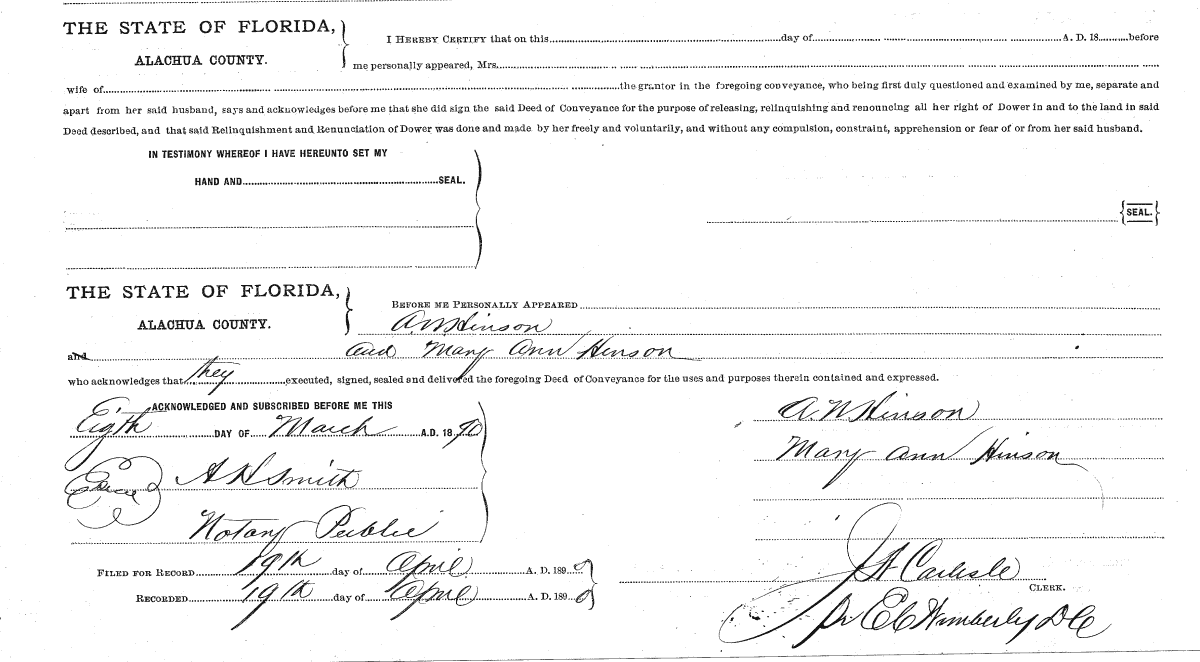 THE STATE OF FLORIDA,
ALACHUA COUNTY.
I HEREBY CERTIFY that on this day of A. D. 18 before
me personally appeared, Mrs.
wife of the grantor in the foregoing conveyance, who being first duly questioned and examined by me, separate and
apart from her said husband, says and acknowledges before me that she did sign the said Deed of Conveyance for the purpose of releasing, relinquishing and renouncing all her right of Dower in and to the land in said
Deed described, and that said Relinquishment and Renunciation of Dower was done and made by her freely and voluntarily, and without any compulsion, constraint, apprehension or fear of or from her said husband.
IN TESTIMONY WHEREOF I HAVE HEREUNTO SET MY
HAND AND SEAL.
SEAL.
THE STATE OF FLORIDA,
ALACHUA COUNTY.
BEFORE ME PERSONALLY APPEARED
A N Hinson
and and Mary Ann Hinson
who acknowledges that they executed, signed, sealed and delivered the foregoing Deed of Conveyance for the uses and purposes therein contained and expressed.
ACKNOWLEDGED AND SUBSCRIBED BEFORE ME THIS
Eigth DAY OF March A.D. 18 90
A H Smith
Notary Public
A. N Hinson
Mary Ann Hinson
FILED FOR RECORD 19th day of April A. D. 189 0
RECORDED 19th day of April A. D. 189 0
Carlisle
CLERK.
Pr E C Wimberly D C